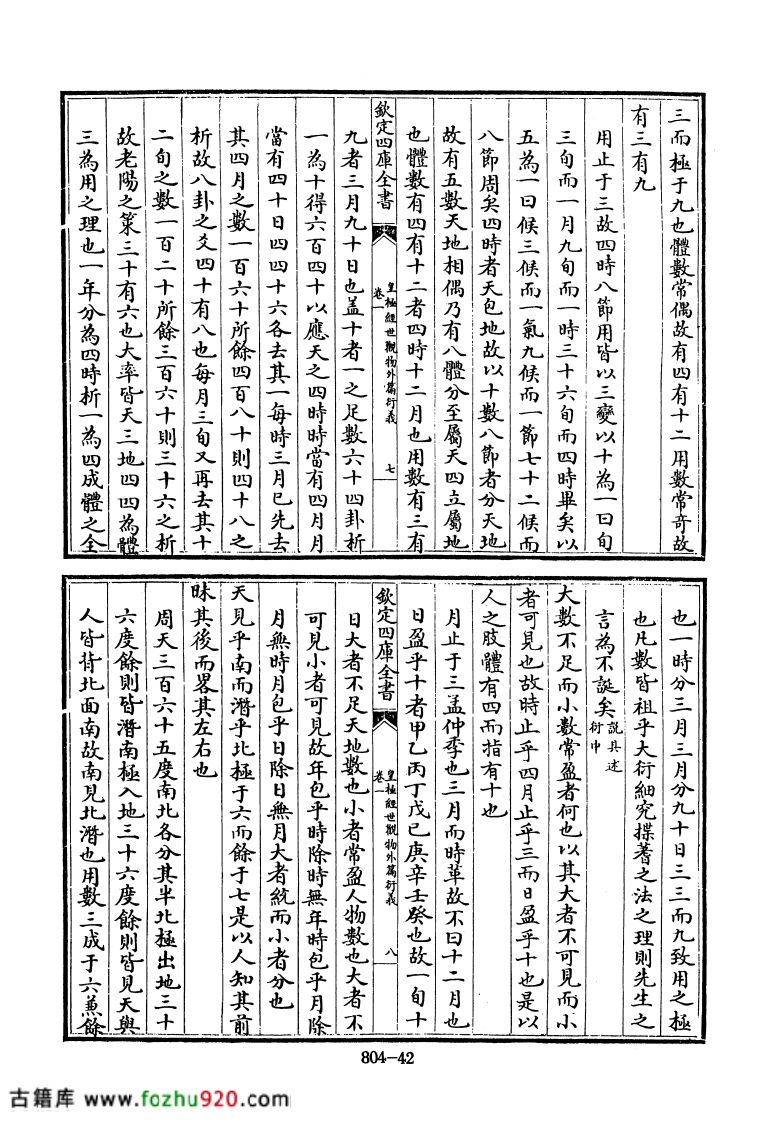 三而極于九也體數常偶故有四有十二用數常竒故
有三有九
用止于三故四時八節用皆以三變以十為一日旬
三旬而一月九旬而一時三十六旬而四時畢矣以
五為一日候三候而一氣九候而一節七十二候而
八節周矣四時者天包地故以十數八節者分天地
故有五數天地相偶乃有八體分至屬天四立屬地
也體數有四有十二者四時十二月也用數有三有
欽定四庫全書
皇極經世觀物外篇衍義
卷一
七
九者三月九十日也盖十者一之足數六十四卦析
一為十得六百四十以應天之四時時當有四月月
當有四十日四四十六各去其一每時三月已先去
其四月之數一百六十所餘四百八十則四十八之
析故八卦之爻四十有八也每月三旬又再去其十
二旬之數一百二十所餘三百六十則三十六之析
故老陽之策三十有六也大率皆天三地四四為體
三為用之理也一年分為四時析一為四成體之全
也一時分三月三月分九十日三三而九致用之極
也凡數皆祖乎大衍細究揲蓍之法之理則先生之
言為不誕矣
説具述
衍中
大數不足而小數常盈者何也以其大者不可見而小
者可見也故時止乎四月止乎三而日盈乎十也是以
人之肢體有四而指有十也
月止于三孟仲季也三月而時革故不曰十二月也
日盈乎十者甲乙丙丁戊己庚辛壬癸也故一旬十
欽定四庫全書
皇極經世觀物外篇衍義
卷一
八
日大者不足天地數也小者常盈人物數也大者不
可見小者可見故年包乎時除時無年時包乎月除
月無時月包乎日除日無月大者統而小者分也
天見乎南而潛乎北極于六而餘于七是以人知其前
昧其後而畧其左右也
周天三百六十五度南北各分其半北極出地三十
六度餘則皆潛南極入地三十六度餘則皆見天與
人皆背北面南故南見北潛也用數三成于六兼餘
804-42
古籍库 www.fozhu920.com